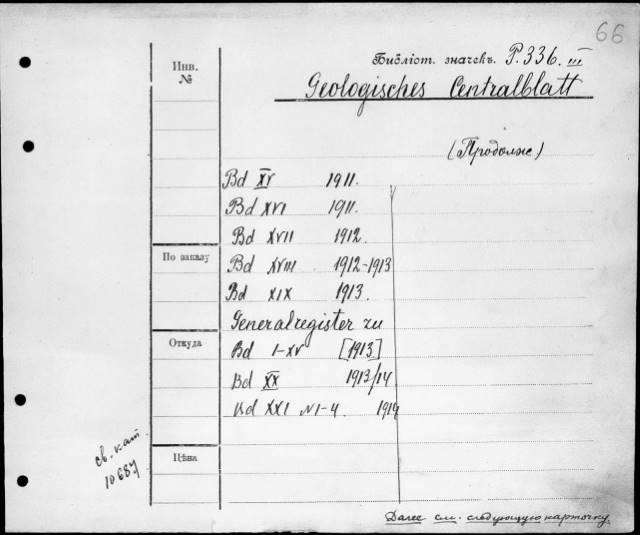 66
Библіот. значекъ P.336. III
Инв. №
Geologisches Centralblatt
(Продолж)
Bd XV 1911.
Bd XVI 1911.
Bd XVII 1912.
По заказу
Bd XVIII 1912-1913
Bd XIX 1913.
Generalregister zu
Откуда
Bd I-XV [1913]
Bd XX 1913/14
Bd XXI N1-4 1914
св. кат.
10687
Цѣна
Далее см. следующую карточку.